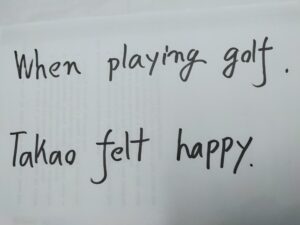 When playing golf.
Takao felt happy.